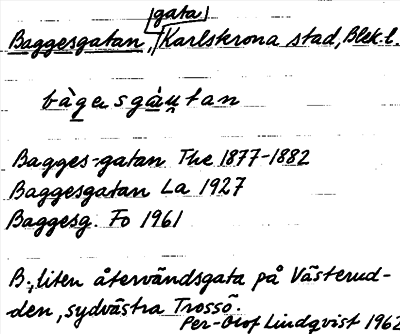 gata
Baggesgatan, Karlskrona stad, Blek. l.
bàgesgáutan
Bagges-gatan The 1877-1882
Baggesgatan La 1927
Baggesg. Fo 1961
B., liten återvändsgata på Västerud-
den, sydvästra Trossö.
Per-Olof Lindqvist 1962